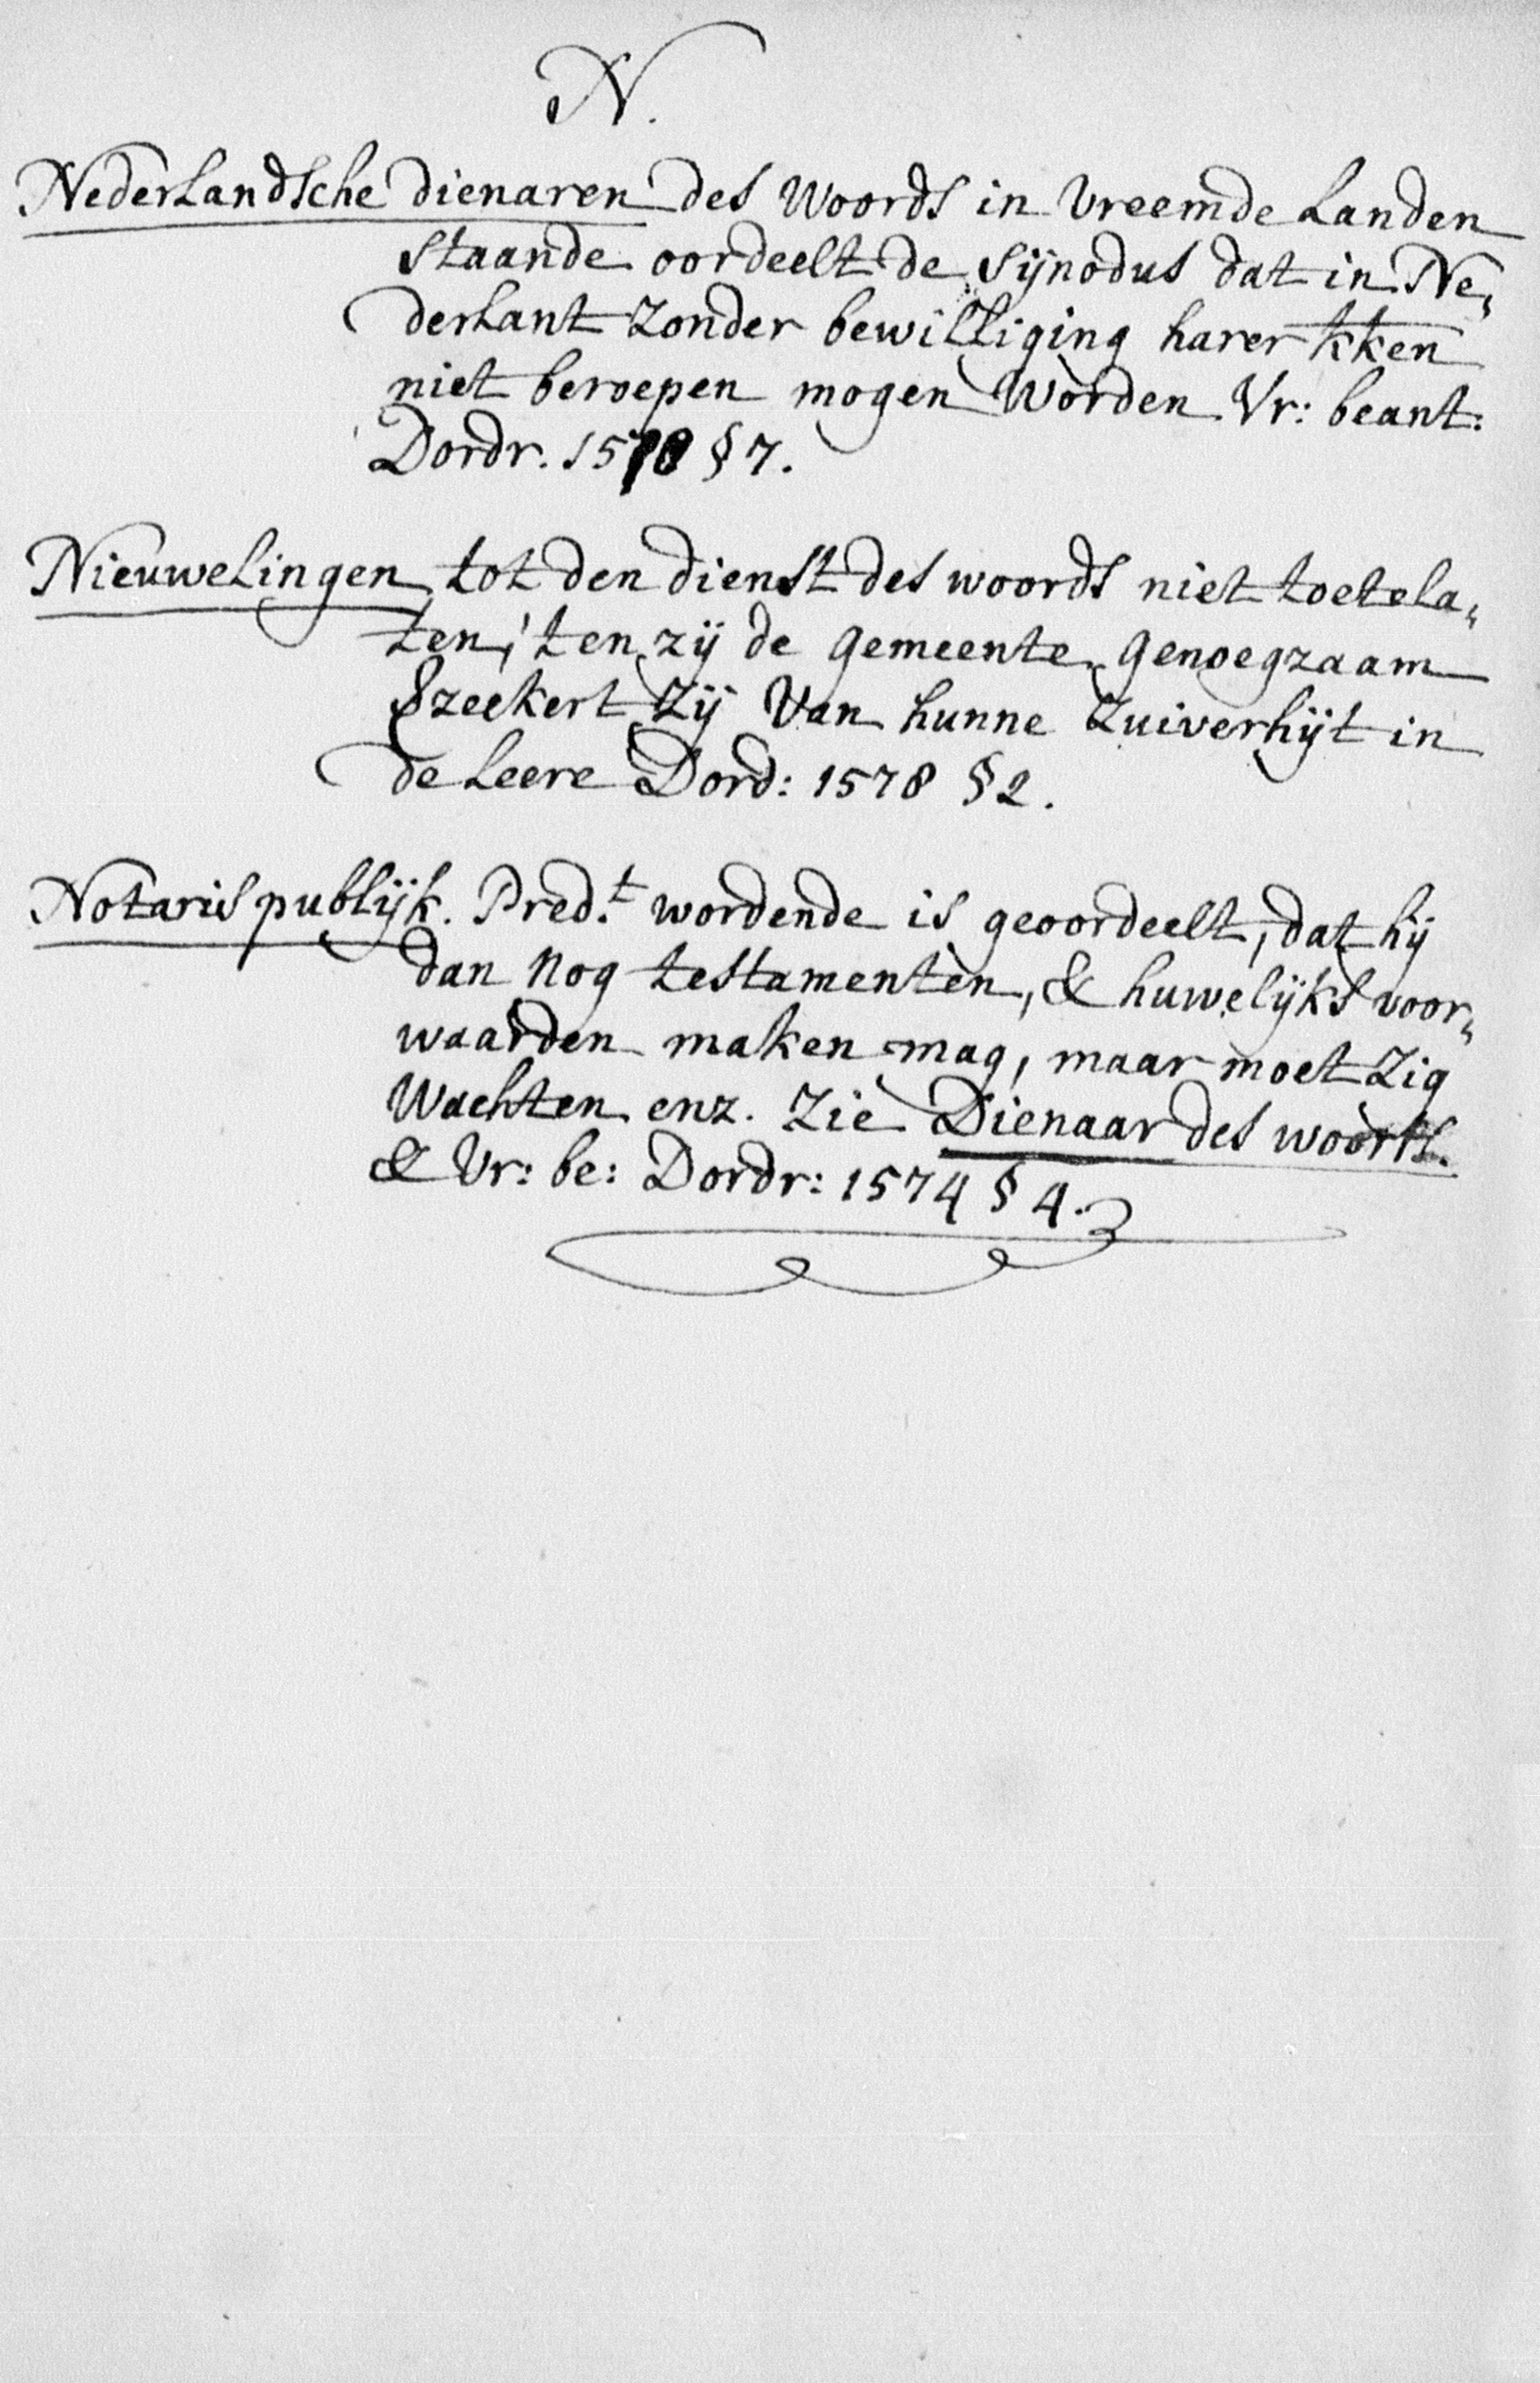 N.
Nederlandsche dienaren des Woords in Vreemde Landen
staande oordeelt de Sijnodus dat in Ne„
derlant zonder bewilliging harer kken
niet beroepen mogen Worden Vr: beant:
Dordr. 1578 § 7.
Nieuwelingen tot den dienst des woords niet toetela„
ten, ten zij de gemeente genoegzaam
zeekert zij Van hunne Zuiverhijt in
de Leere Dord: 1578 § 2.
Notaris publijk. Pred.t wordende is geoordeelt, dat hij
dan nog testamenten, & huwelijks voor„
waarden maken mag, maar moet Zig
Wachten enz. Zie Dienaar des woorts.
& Vr: be: Dordr: 1574 § 4.